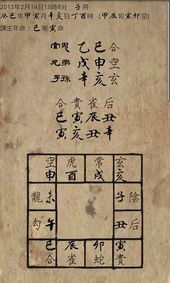 2013年2月14日18時8分 子將
癸巳年甲寅月辛亥日丁酉時 (甲辰旬寅卯空)
官鬼 乙 巳 合
兄弟 戊 申 空
子孫 辛 亥 玄
合 貴 雀 后
巳 寅 辰 丑
寅 亥 丑 辛
空 虎 常 玄
申 酉 戌 亥
龍 未 子 陰
勾 午 丑 后
巳 辰 卯 寅
合 雀 蛇 貴